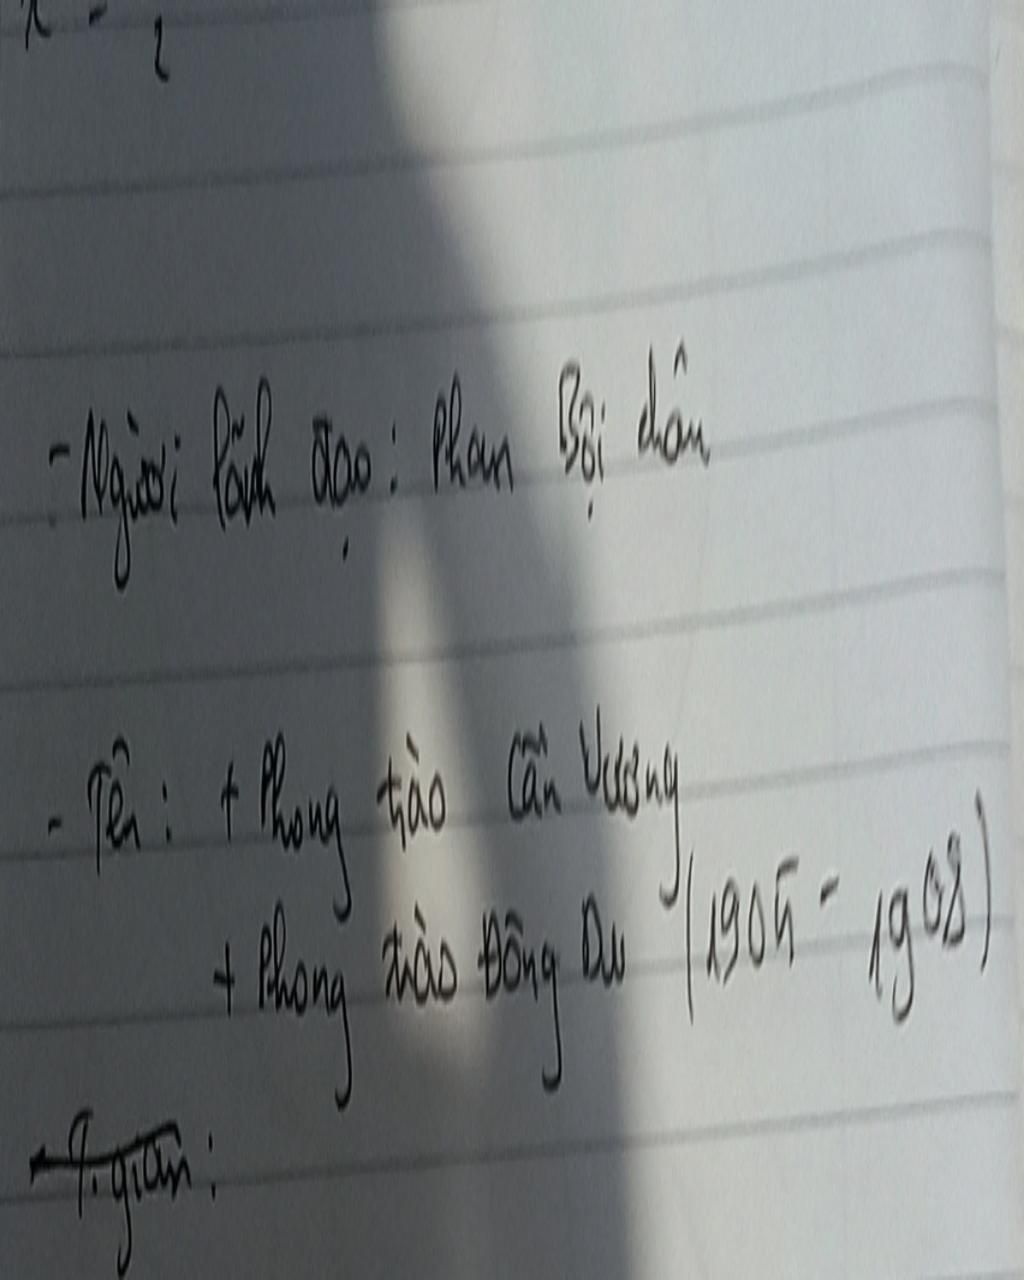 - Người lãnh đạo: Phan Bội Châu
- Tên: + Phong trào Cần Vương
+ Phong trào Đông Du (1905 - 1908)
- T.gian: